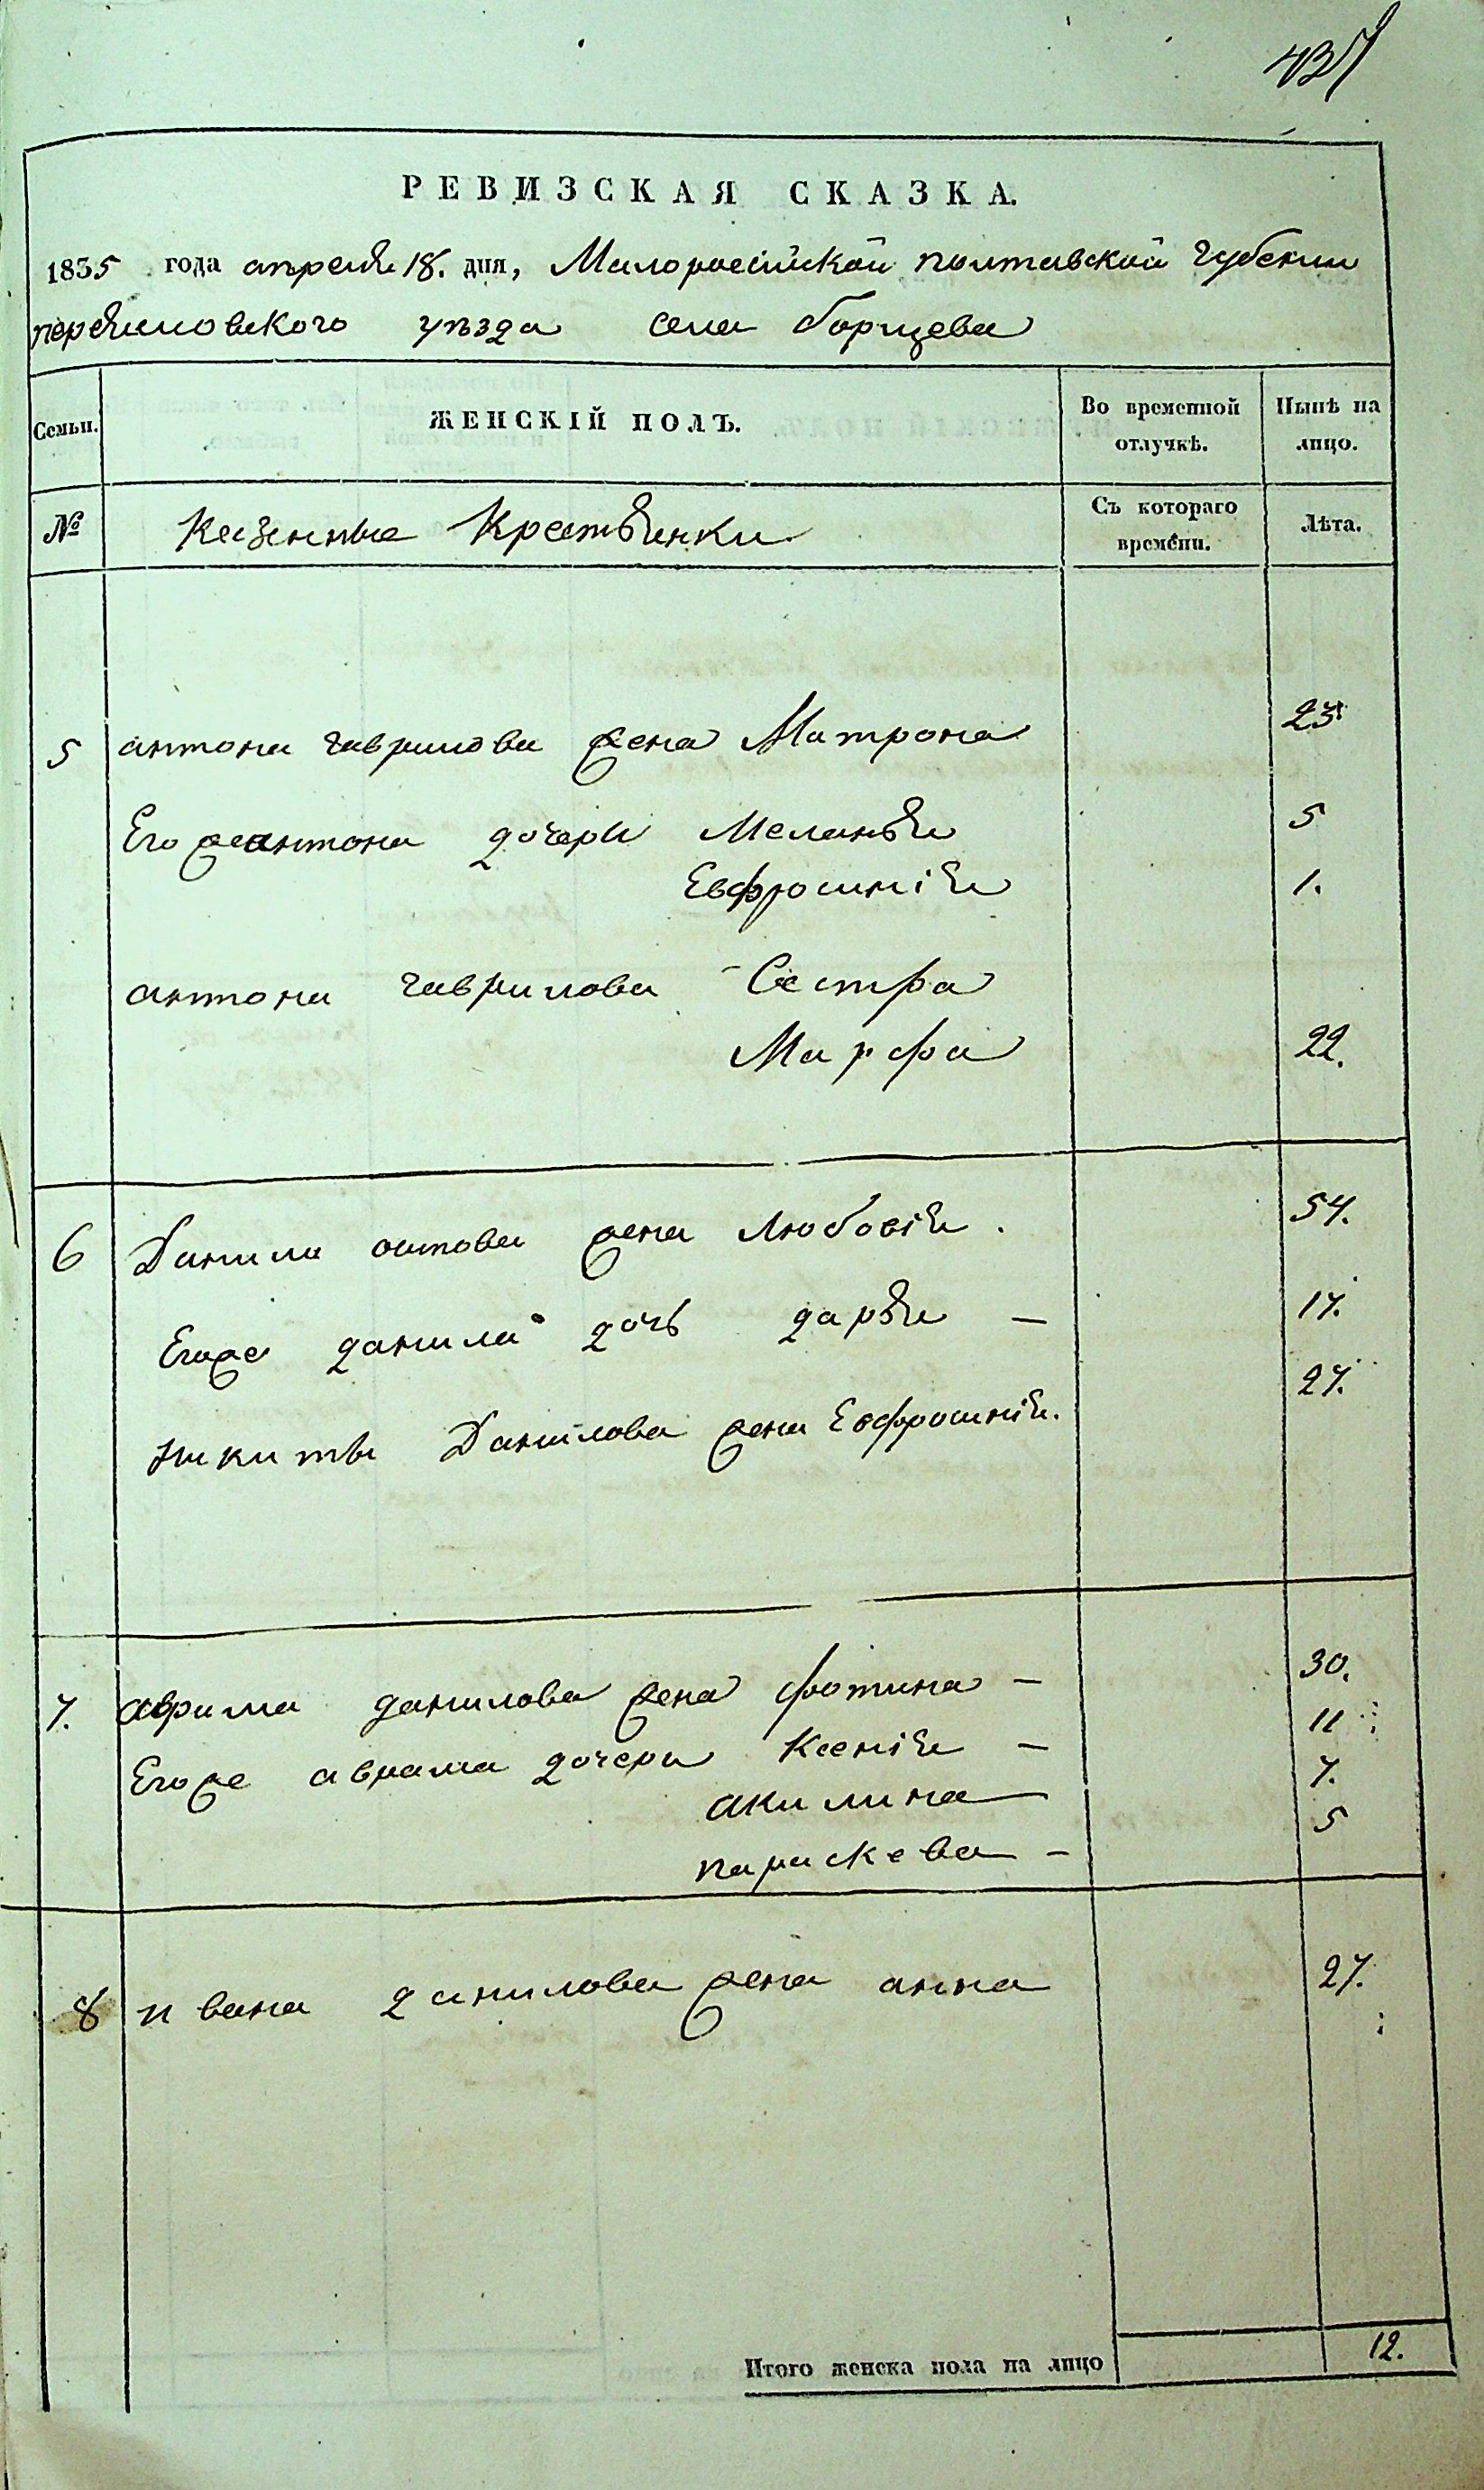 437
РЕВИЗСКАЯ СКАЗКА.
1835 года апреля 18. дня, Малоросійской полтавской губеніи
переяиловского уѣзда села борщева
Семьи. ЖЕНСКІЙ ПОЛЪ. Во временной отлучкѣ. Нынѣ на лицо.
№ Казенные Крестьянки Съ котораго времени. Лѣта.
5 антона гаврилова жена Матрона 23
Его же антона дочери Меланья 5
Евфросинія 1.
антона гаврилова Сестра
Марфа 22.
6 Данила жена Любовія. 54.
Егоже данила дочь дарья — 17.
никиты Данилова жена Евфросинія. 27.
7. аврама данилова жена фотина — 30.
Егоже аврама дочери Ксенія — 11
акилина — 7.
параскева — 5
8 ивана данилова жена анна 27.
Итого женска пола на лицо 12.